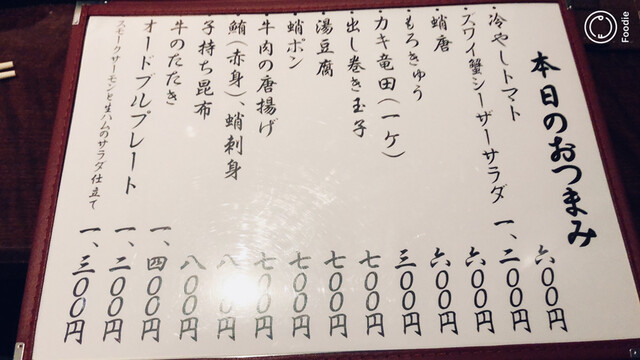 本日のおつまみ
・冷やしトマト 六〇〇円
・ズワイ蟹シーザーサラダ 一、二〇〇円
・蛸唐 六〇〇円
・もろきゅう 六〇〇円
・カキ竜田(一ケ) 三〇〇円
・出し巻き玉子 七〇〇円
・湯豆腐 七〇〇円
・蛸ポン 七〇〇円
牛肉の唐揚げ 七〇〇円
鮪(赤身)、蛸刺身 八〇〇円
子持ち昆布 八〇〇円
牛のたたき 一、四〇〇円
オードブルプレート 一、二〇〇円
スモークサーモンと生ハムのサラダ仕立て 一、三〇〇円
Foodie